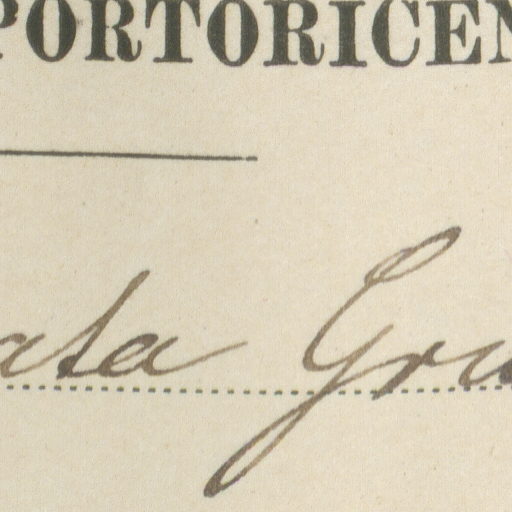 PORTORICEN
ata Gru